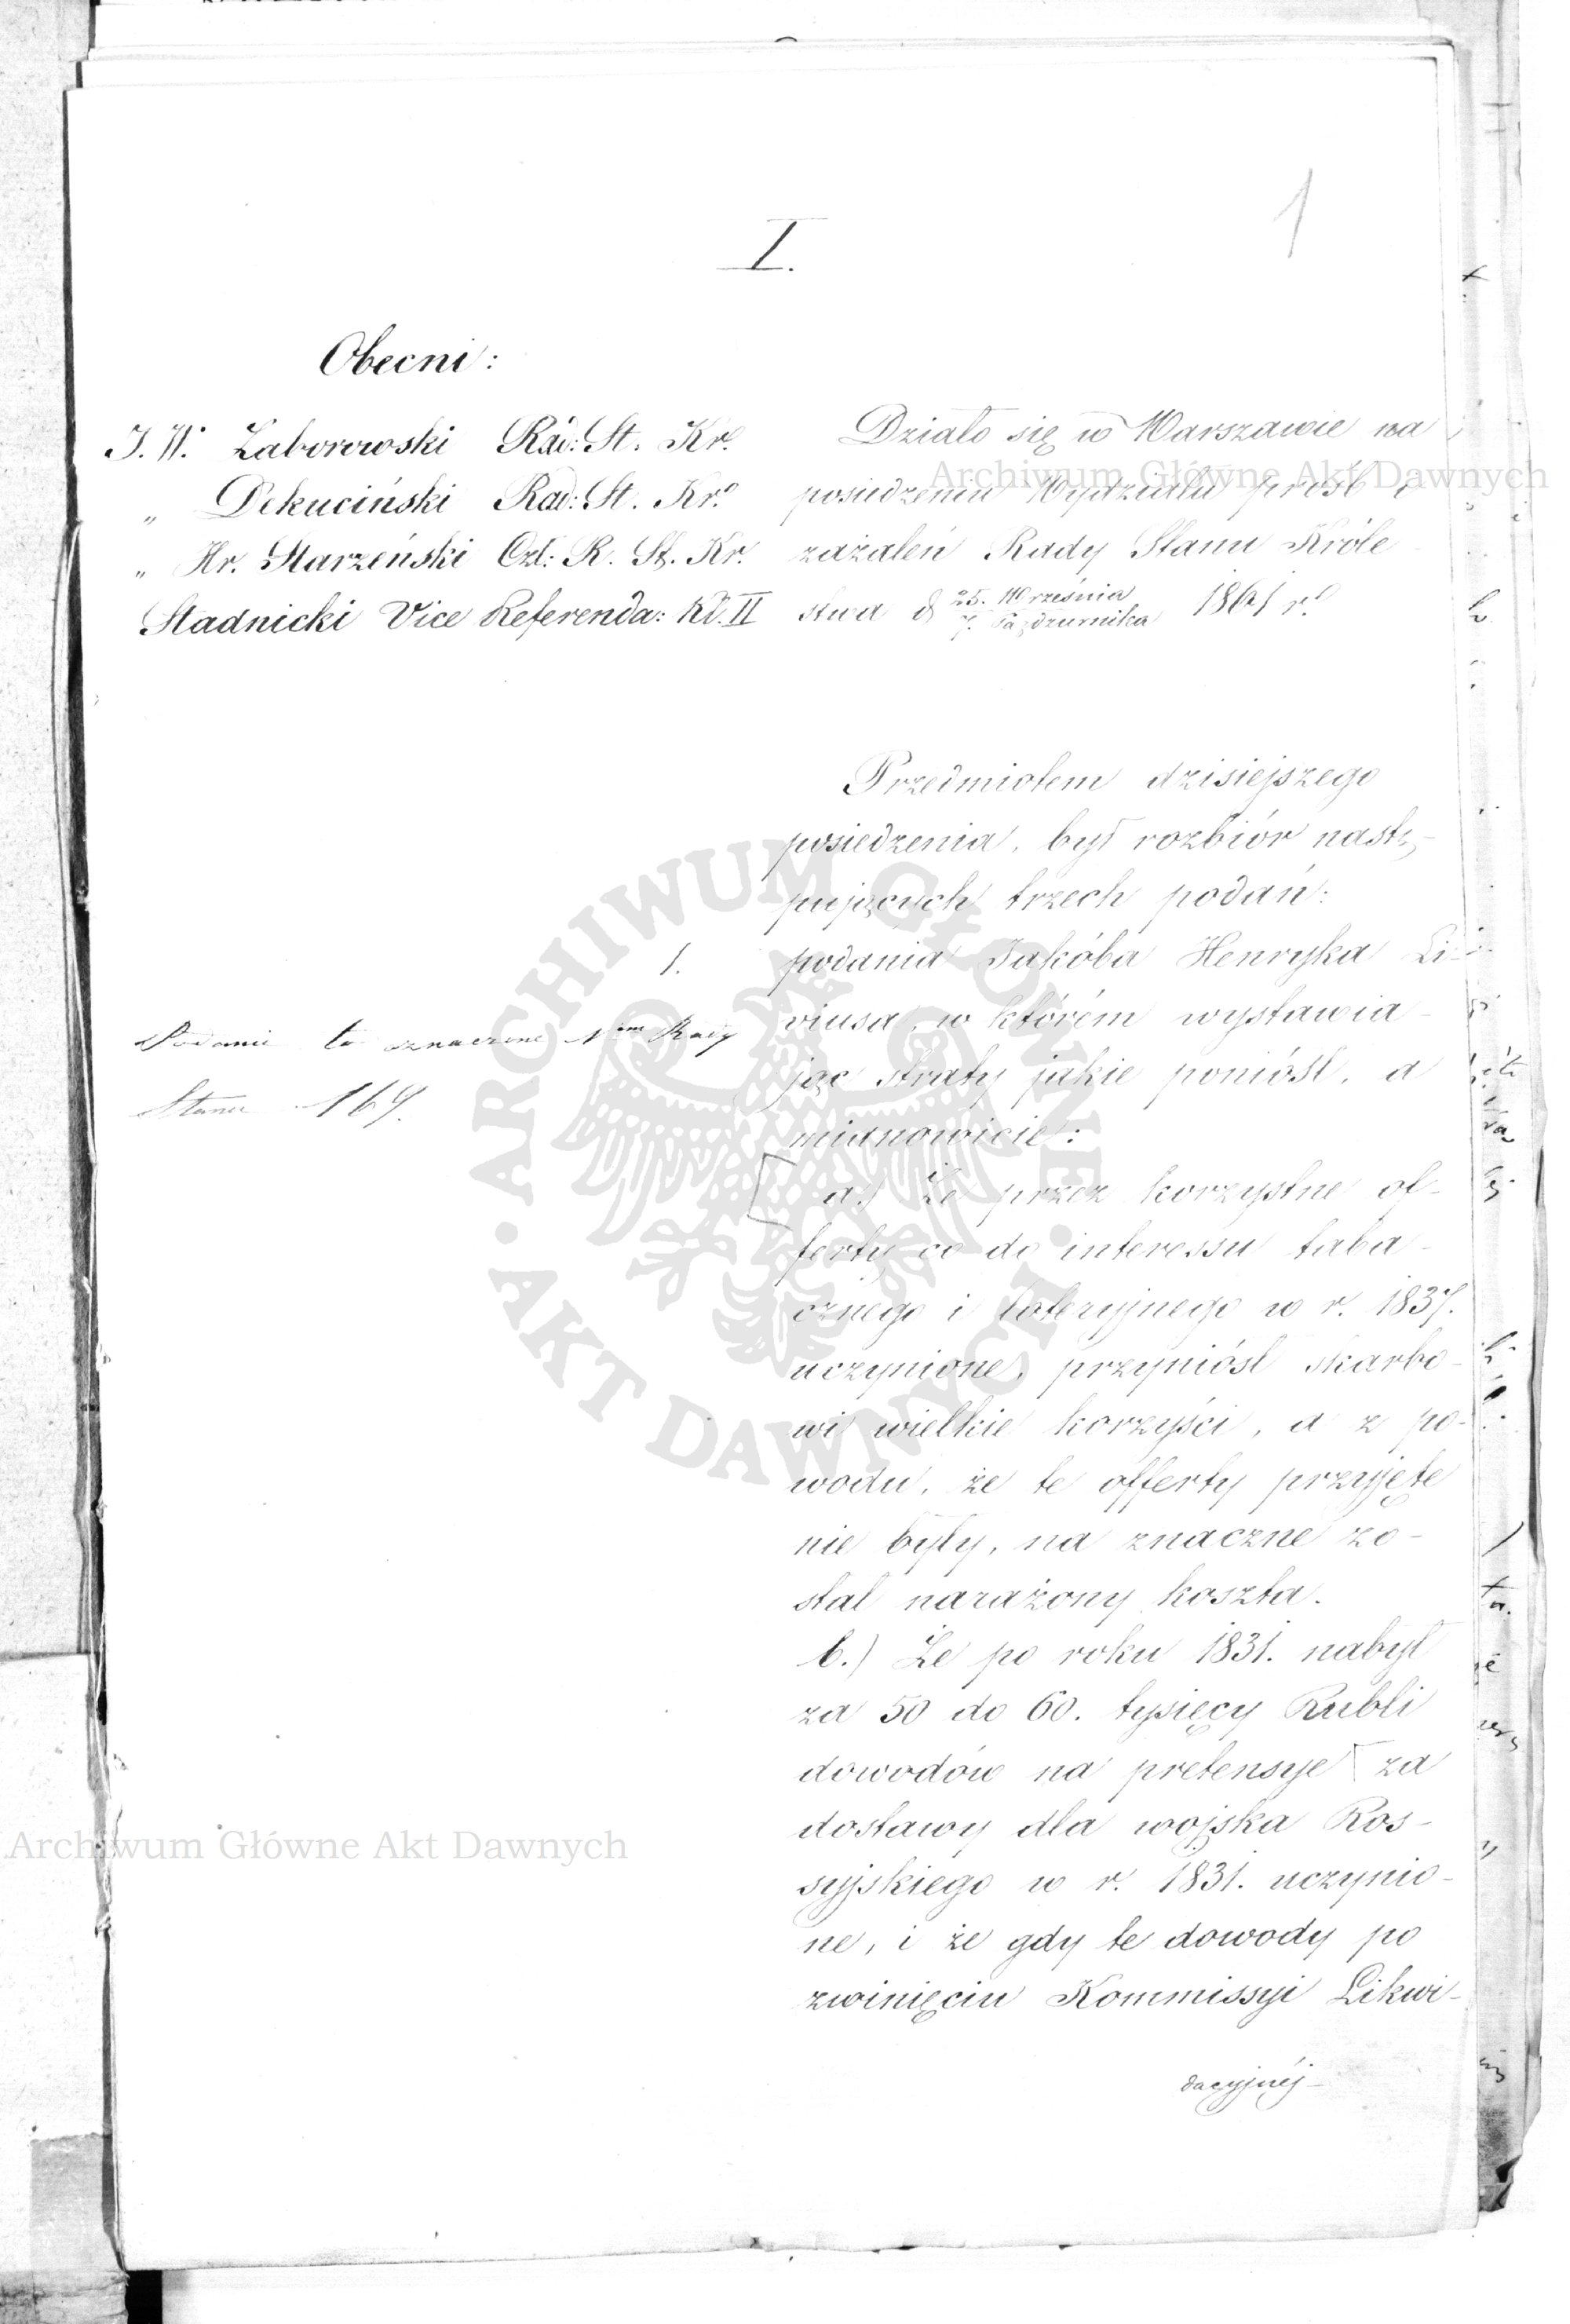 1
I.
Obecni:
J. W. Zaborowski Rad: St. Kr.
„ Dekuciński Rad: St. Kr.
„ Hr. Starzeński Czł: R. St. Kr.
Stadnicki Vice Referenda: Kl. II
Działo się w Warszawie na
posiedzeniu Wydziału prósb i
zażaleń Rady Stanu Króle
stwa d 25. Września
7. Października 1861 r.
Przedmiotem dzisiejszego
posiedzenia, był rozbiór nastę-
pujących trzech podań:
1. podania Jakóba Henryka Li-
viusa, w którém wystawia-
jąc straty jakie poniósł, a
mianowicie:
Podanie to oznaczone Nrem Rady
Stanu 164.
a.) Że przez korzystne of-
ferty co do interessu taba-
cznego i loteryjnego w r. 1837.
uczynione, przyniósł skarbo-
wi wielkie korzyści, a z po-
wodu, że te offerty przyjęte
nie były, na znaczne zo-
stał narażony koszta.
b.) Że po roku 1831. nabył
za 50 do 60. tysięcy Rubli
dowodów na pretensye za
dostawy dla wojska Ros-
syjskiego w r. 1831. uczynio-
ne, i że gdy te dowody po
zwinięciu Kommissyi Likwi-
dacyjnéj-
Archiwum Główne Akt Dawnych
ARCHIWUM GŁÓWNE AKT DAWNYCH
Archiwum Główne Akt Dawnych